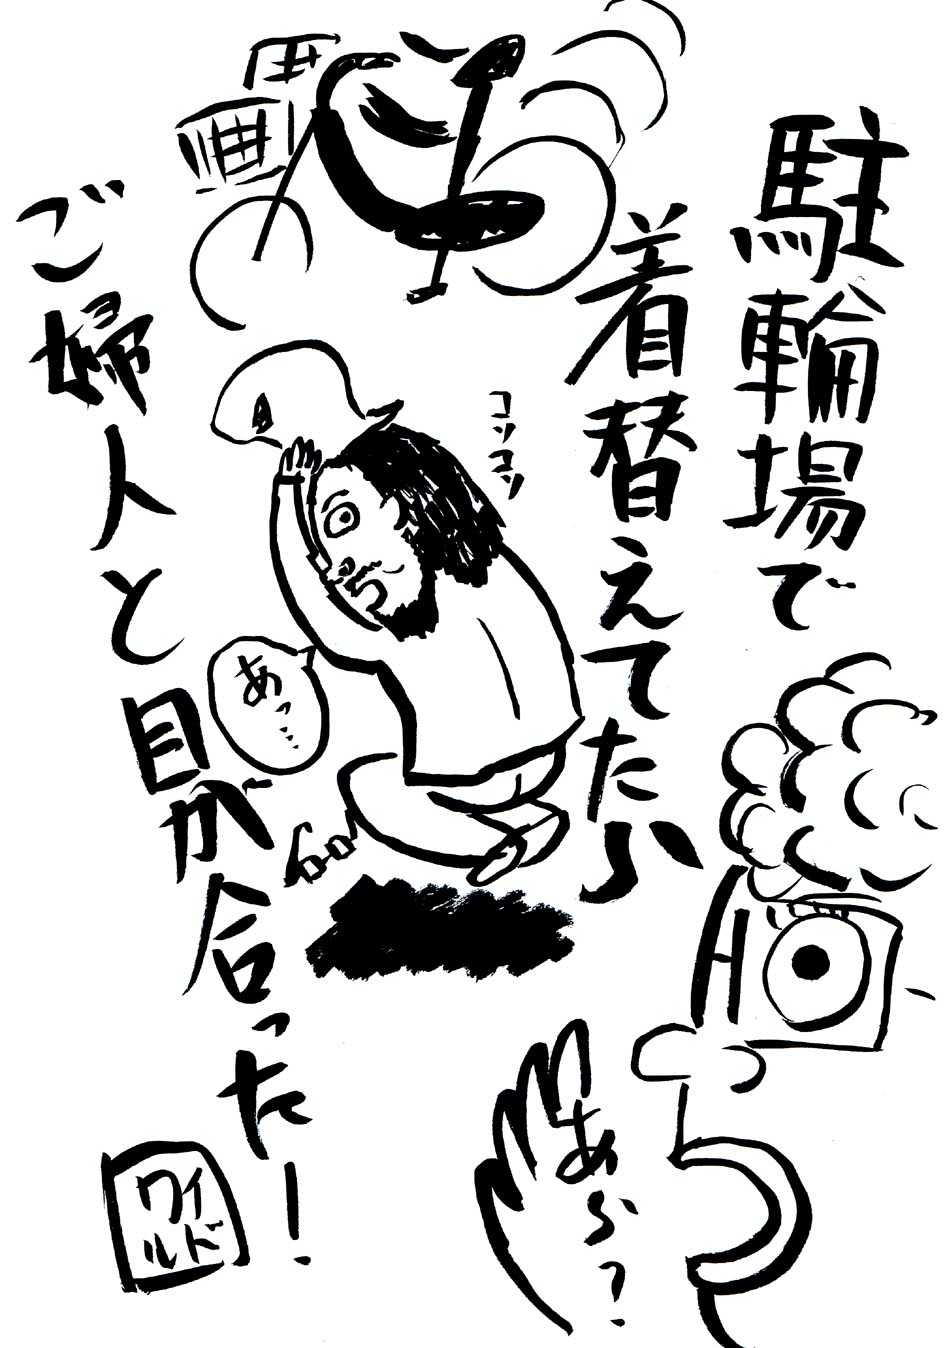 駐輪場で
着替えてたら
ご婦人と
目が合った!
コソコソ
あっ…
あら?
ワイ
ルド